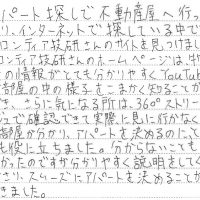 パート探しで不動産屋へ行っ
り、インターネットで探している中で
ロンティア技研さんのサイトを見つけまし
ロンティア技研さんのホームページは、物
の情報がとても分かりやすくYouTub
部屋の中の様子をこまかく知ることが
き、さらに気になる所は、360°ストリー
ジュで確認できて実際に見に行かなく
部屋が分かり、アパートを決めるのにと
も役に立ちました。分からないことも
かったのですが分かりやすく説明をしてく
さり、スムーズにアパートを決めることが
きました。